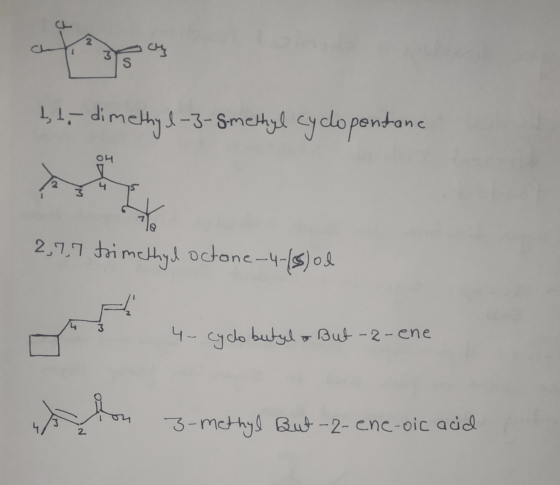 Cl
Cl 1 2 3 CH3
S
1,1,- dimethyl-3-Smethyl cyclopentane
OH
1 2 3 4 5
6 7 8
2,7,7 trimethyl octane-4-(S)ol
1
4 3 2
4- cyclobutyl - But-2-ene
O
4 3 2 1 OH
3-methyl But-2-ene-oic acid